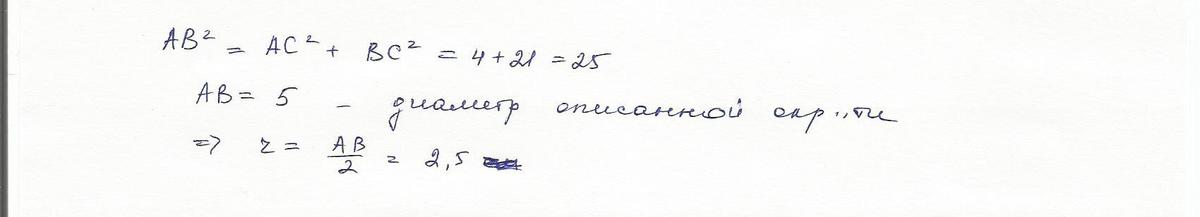 AB² = AC² + BC² = 4 + 21 = 25
AB = 5 – диаметр описанной окр „ти
=> r = AB/2 = 2,5